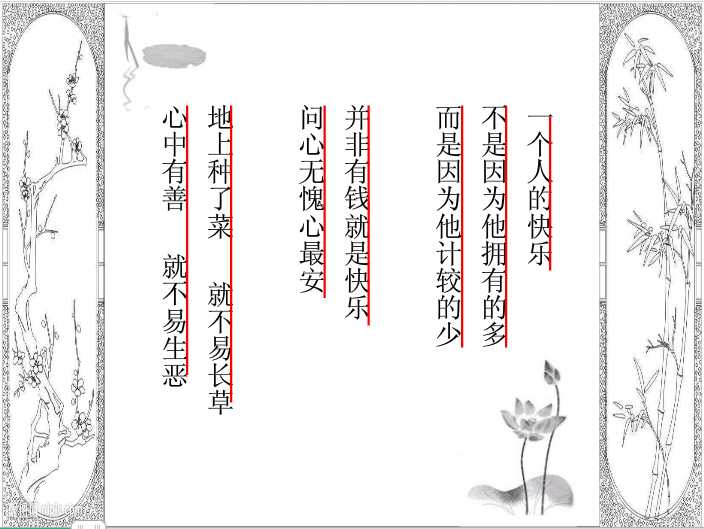 一个人的快乐
不是因为他拥有的多
而是因为他计较的少
并非有钱就是快乐
问心无愧心最安
地上种了菜 就不易长草
心中有善 就不易生恶